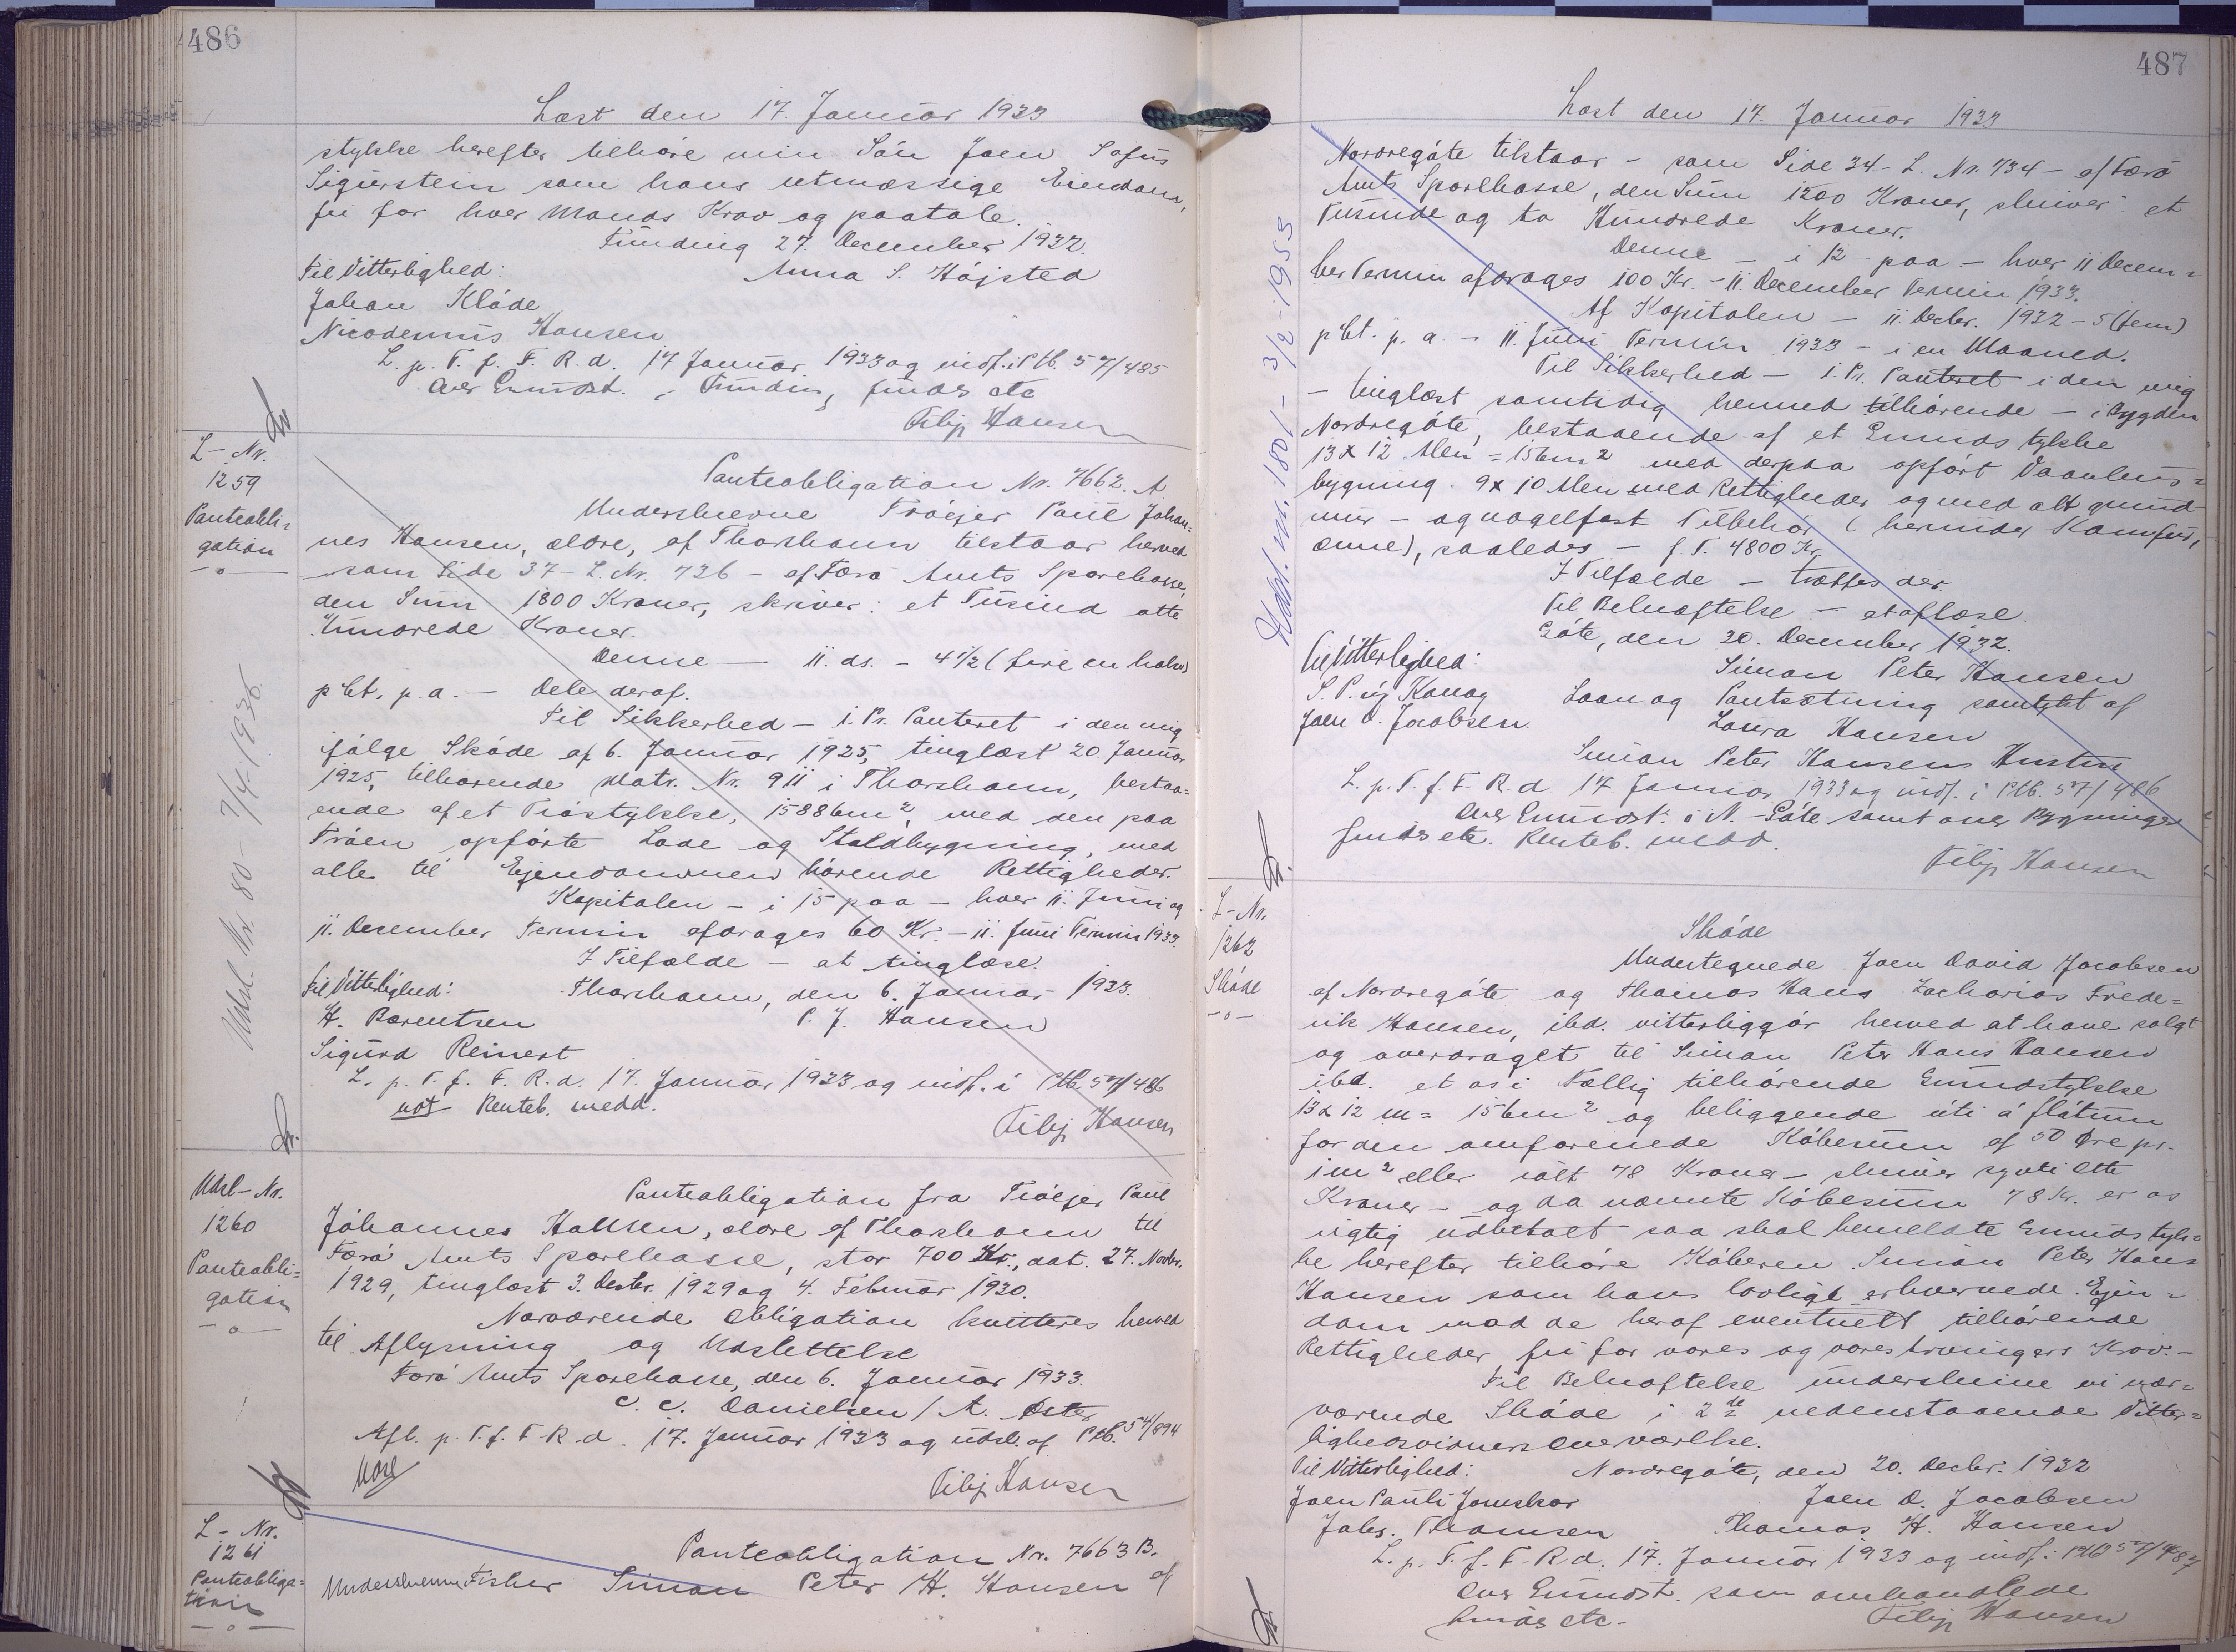 486
Læst den 17. Januar 1933
stykke herefter tilhøre min Sön Joen Sofus
Sigurstein som hans retmæssige Eiendom,
fri for hver Mands Krav og paatale.
Funding 27. December 1932.
Til Vitterlighed: Anna S. Højsted
Johan Klöde
Nicodemus Hansen
L. p. T. f. F. R. d. 17 Januar 1933 og indf. i Ptb. 57/485
Over Grundst. i Funding findes etc
Filip Hansen
L-Nr.
1259
Panteobli=
gation
-o-
Udsl. Nr 80 - 7/4-1936
Panteobligation Nr. 7662. A
Underskrevne Tröejer Paul Johan=
nes Hansen, ældre, af Thorshavn tilstaar herved
som Side 37 - L. Nr. 736 - af Færö Amts Sparekasse,
den Sum 1800 Kroner, skriver: et Tusind otte
Hundrede Kroner.
Denne — 11. ds. - 4½ (fire en halv)
pCt. p.a. — Dele deraf.
Til Sikkerhed - 1. Pr. Panteret i den mig
ifölge Sköde af 6. Januar 1925, tinglæst 20. Januar
1925, tilhörende Matr. Nr. 911 i Thorshavn, bestaa=
ende af et Tröstykke, 15886m², med den paa
Tröen opförte Lade og Staldbygning, med
alle til Ejendommen hörende Rettigheder.
Kapitalen - i 15 paa - hver 11. Juni og
11. December Termin afdrages 60 Kr. - 11. Juni Termin 1933.
I Tilfælde - at tinglæse.
Til Vitterlighed: Thorshavn, den 6. Januar 1933.
H. Barentsen P. J. Hansen
Sigurd Reinert
L. p. T. f. F. R. d. 17. Januar 1933 og indf. i Ptb. 57/486
not Renteb. medd.
Filip Hansen
Udsl-Nr.
1260
Panteobli=
gation
-o-
Panteobligation fra Tröejer Paul
Jóhannes Hansen, ældre af Thorshavn til
Færö Amts Sparekasse, stor 700 Kr., dat. 27. Novbr.
1929, tinglæst 3. Decbr. 1929 og 4. Februar 1930.
Nærværende Obligation kvitteres herved
til Aflysning og Udslettelse
Færö Amts Sparekasse, den 6. Januar 1933.
C. C. Danielsen / A. Öster
Afl. p. T. f. F. R. d. 17. Januar 1933 og udsl. af Ptb. 54/894
Filip Hansen
L-Nr.
1261
Panteobliga=
tion
-o-
Panteobligation Nr. 7663 B.
Underskrevne Fisker Simon Peter H. Hansen af
487
Læst den 17. Januar 1933
Udsl. nr. 1801 - 3/2-1955
Nordregöte tilstaar - som Side 34 - L. Nr. 734 - af Færö
Amts Sparekasse, den Sum 1200 Kroner, skriver: et
Tusinde og to Hundrede Kroner.
Denne - i 12 paa - hver 11 Decem=
ber Termin afdrages 100 Kr. - 11. December Termin 1933.
Af Kapitalen - 11. Decbr. 1932 - 5 (fem)
pCt. p. a. - 11. Juni Termin 1933 - i en Maaned.
Til Sikkerhed - 1. Pr. Panteret i den mig
- tinglæst samtidig hermed tilhörende - i Bygden
Nordregöte, bestaaende af et Grundstykke
13 x 12 Alen = 156m² med derpaa opfört Vaanhus=
bygning. 9 x 10 Alen med Rettigheder og med alt grund
mur- og nagelfast Tilbehör (herunder Komfur,
ovne), saaledes - f. T. 4800 Kr.
I Tilfælde - træffes der.
Til Bekræftelse - at aflæse.
Göte, den 30. December 1932.
Til Vitterlighed: Simon Peter Hansen
S. P. úr Konoy Laan og Pantsætning samtykt af
Joen D. Jacobsen Laura Hansen
Simon Peter Hansens Hustru
L. p. T. f. F. R. d. 17 Januar 1933 og indf. i Ptb. 57/486
Over Grundst. i N.-Göte samt over Bygninger
findes etc. Renteb. medd.
Filip Hansen
L-Nr.
1262
Sköde
-o-
Sköde
Undertegnede Joen David Jacobsen
af Nordregöte og Thomas Hans Zacharias Frede=
rik Hansen, ibd. vitterliggör herved at have solgt
og overdraget til Simon Peter Hans Hansen
ibd. et os i Fællig tilhörende Grundstykke
13 x 12 m = 156m² og beliggende úti á fløtum
for den omforenede Köbesum af 50 Øre pr.
1m² eller ialt 78 Kroner - skriver syvti otte
Kroner - og da nævnte Köbesum 78 Kr. er os
rigtig udbetalt saa skal bemeldte Grundstyk=
ke herefter tilhöre Köberen Simon Peter Hans
Hansen som hans lovligt erhvervede Ejen=
dom med de heraf eventuelt tilhörende
Rettigheder, fri for vores og vores Arvingers Krav. -
Til Bekræftelse underskrive vi nær=
værende Sköde i 2de nedenstaaende Vitter=
lighedsvidners Overværelse.
Til Vitterlighed: Nordregöte, den 20. Decbr. 1932
Joen Pauli Joensen Joen D. Jacobsen
Johs. Thomsen Thomas H. Hansen
L. p. T. f. F. R. d. 17. Januar 1933 og indf. i Ptb 57/487
Over Grundst. som omhandlede
findes etc.
Filip Hansen